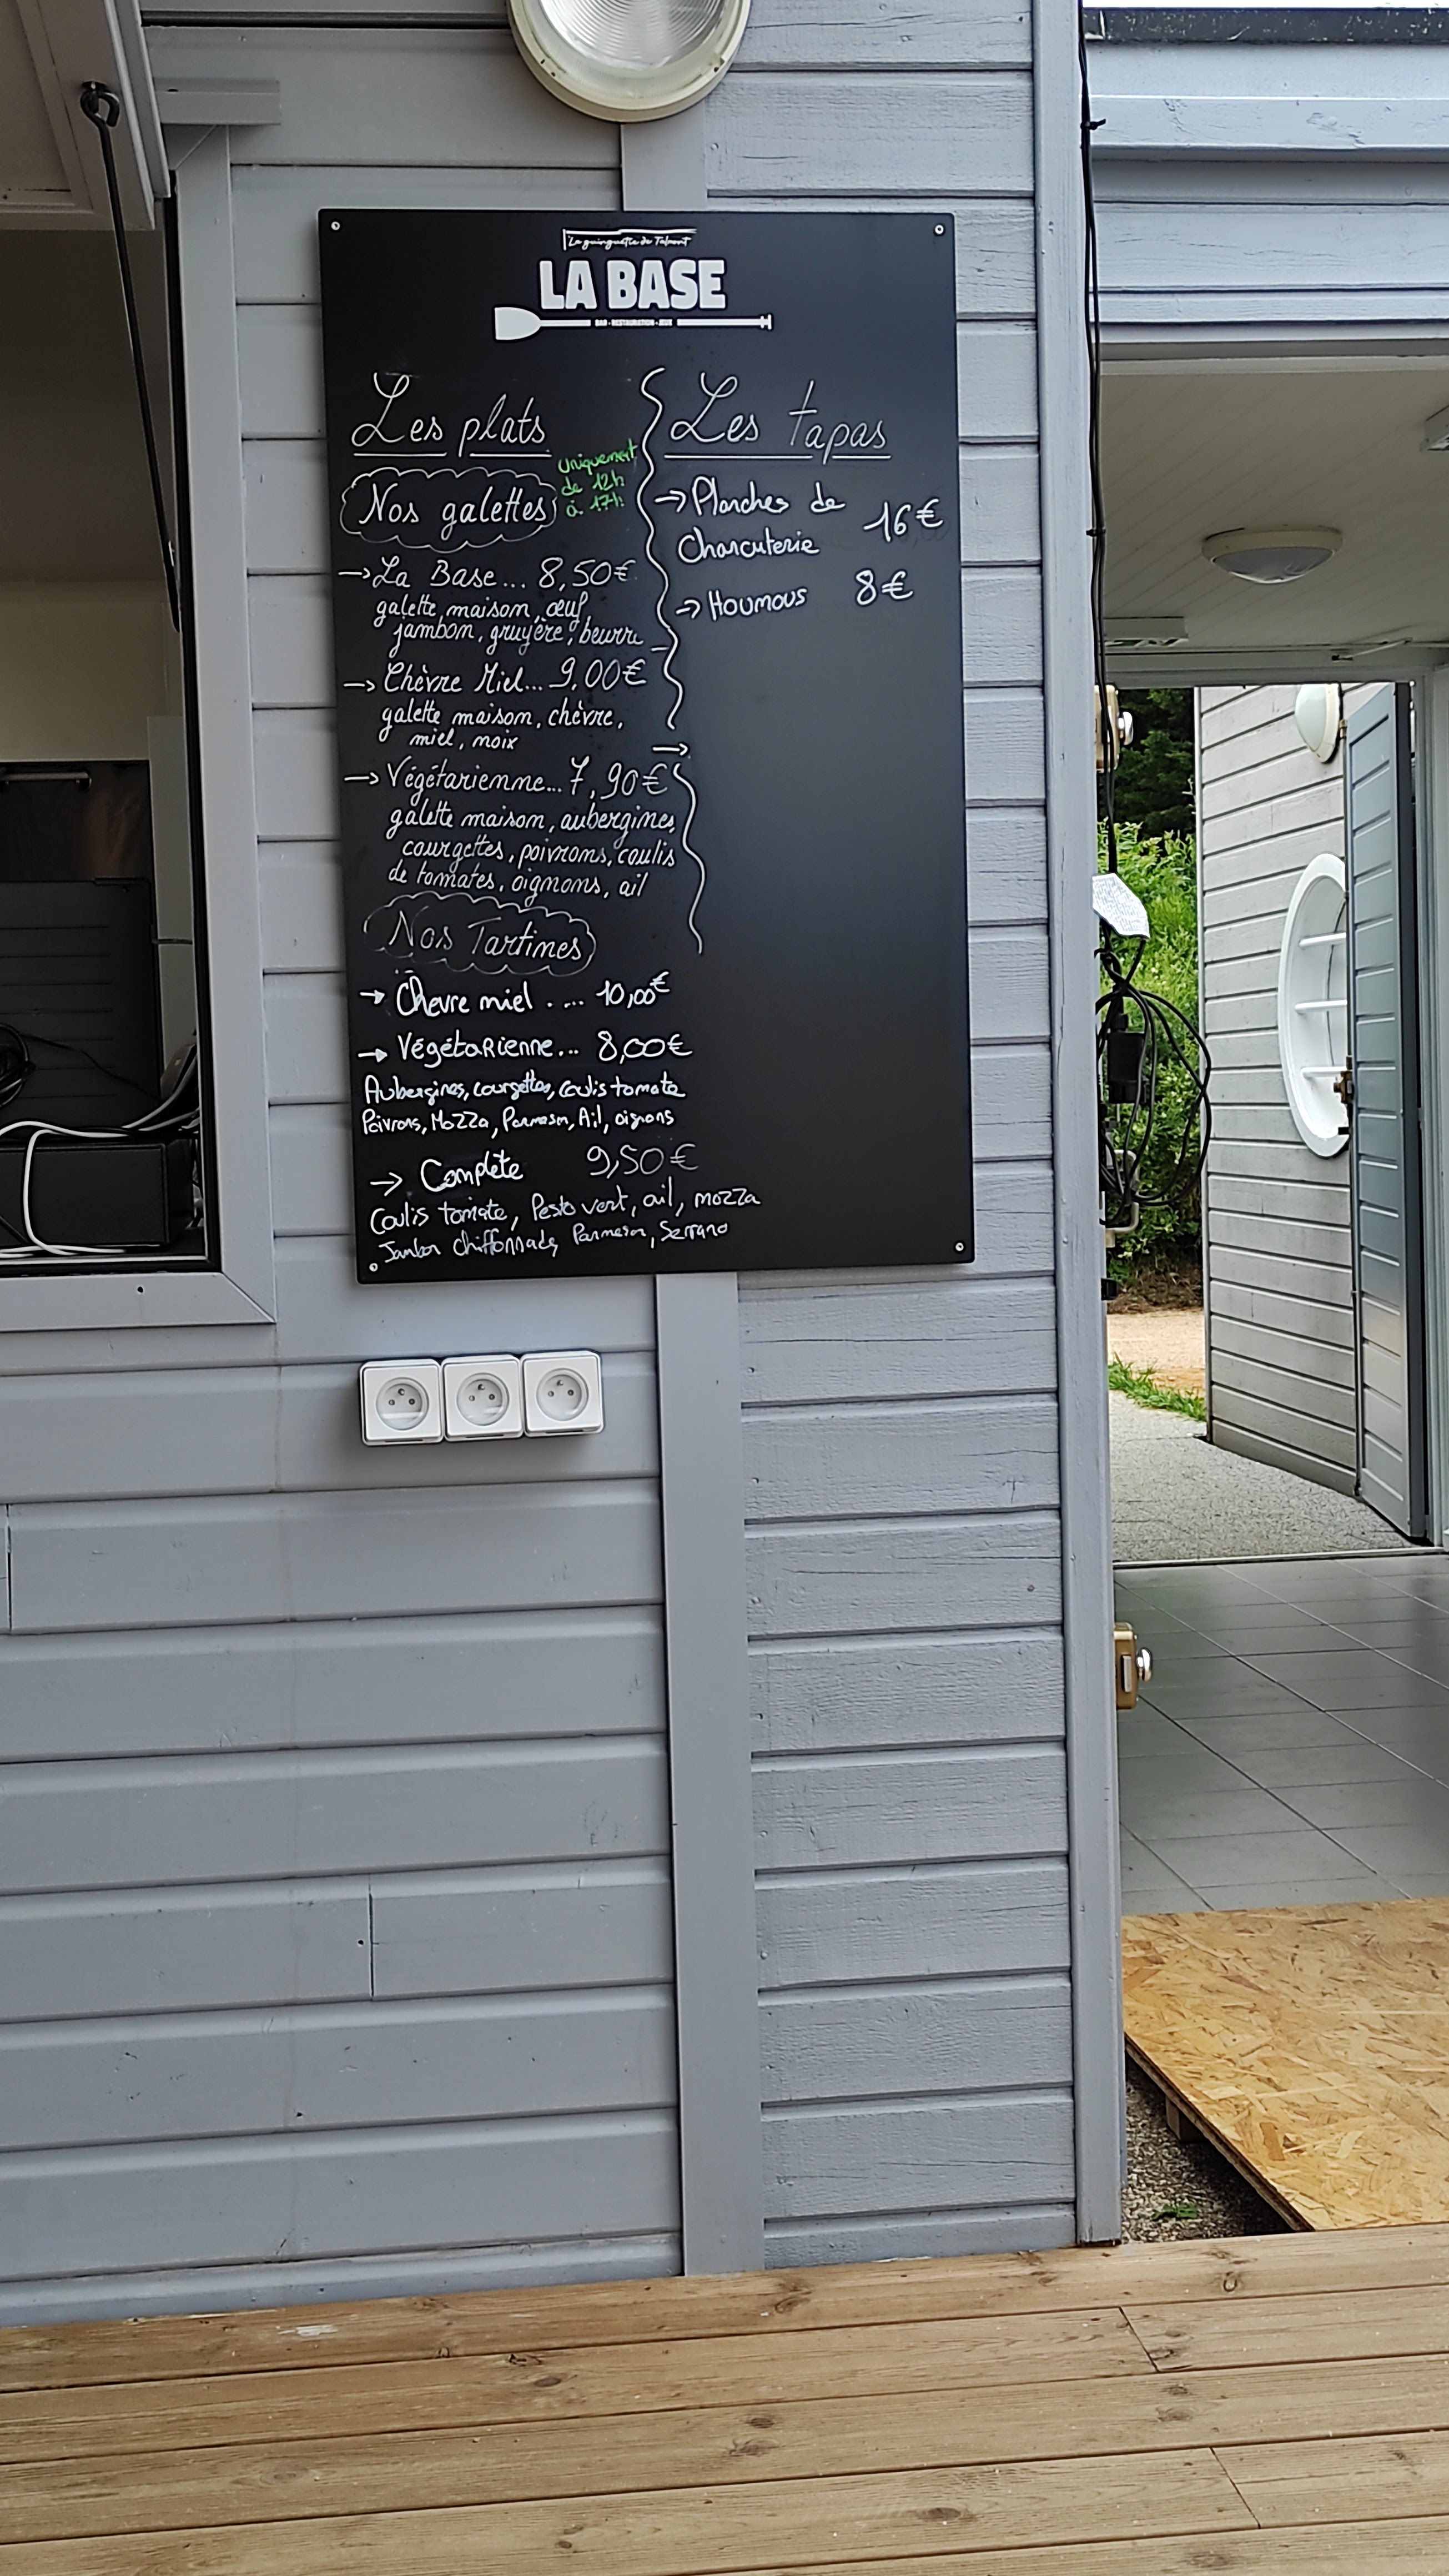 La guinguette de Talmont
LA BASE
Les plats
Nos galettes
uniquement
de 12h
à 17h
→ La Base... 8,50€
galette maison, œuf
jambon, gruyère, beurre
→ Chèvre Miel... 9,00€
galette maison, chèvre,
miel, noix
→ Végétarienne... 7,90€
galette maison, aubergines,
courgettes, poivrons, coulis
de tomates, oignons, ail
Nos Tartines
→ Chevre miel . ... 10,00€
→ Végétarienne... 8,00€
Aubergines, courgettes, coulis tomate
Poivrons, Mozza, Parmesan, Ail, oignons
→ Complète 9,50€
Coulis tomate, Pesto vert, ail, mozza
Jambon chiffonnade, Parmesan, Serrano
Les tapas
→ Planches de
Charcuterie 16€
→ Houmous 8€